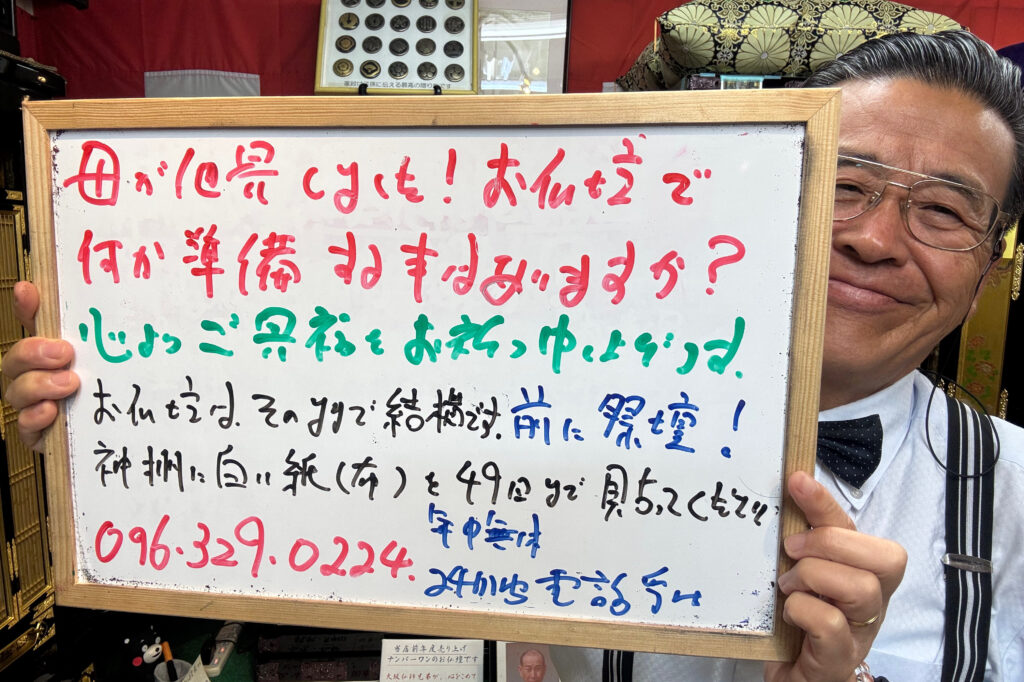 家訓と共に伝える最高の贈り物
母が他界しました！お仏壇で
何か準備する事はありますか？
心よりご冥福をお祈り申し上げます。
お仏壇は、そのままで結構です。前に祭壇！
神棚に白い紙(布)を49日まで貼ってください
年中無休
096.329.0224.
24時間電話受付
当店前年度売り上げ
ナンバーワンのお仏壇です